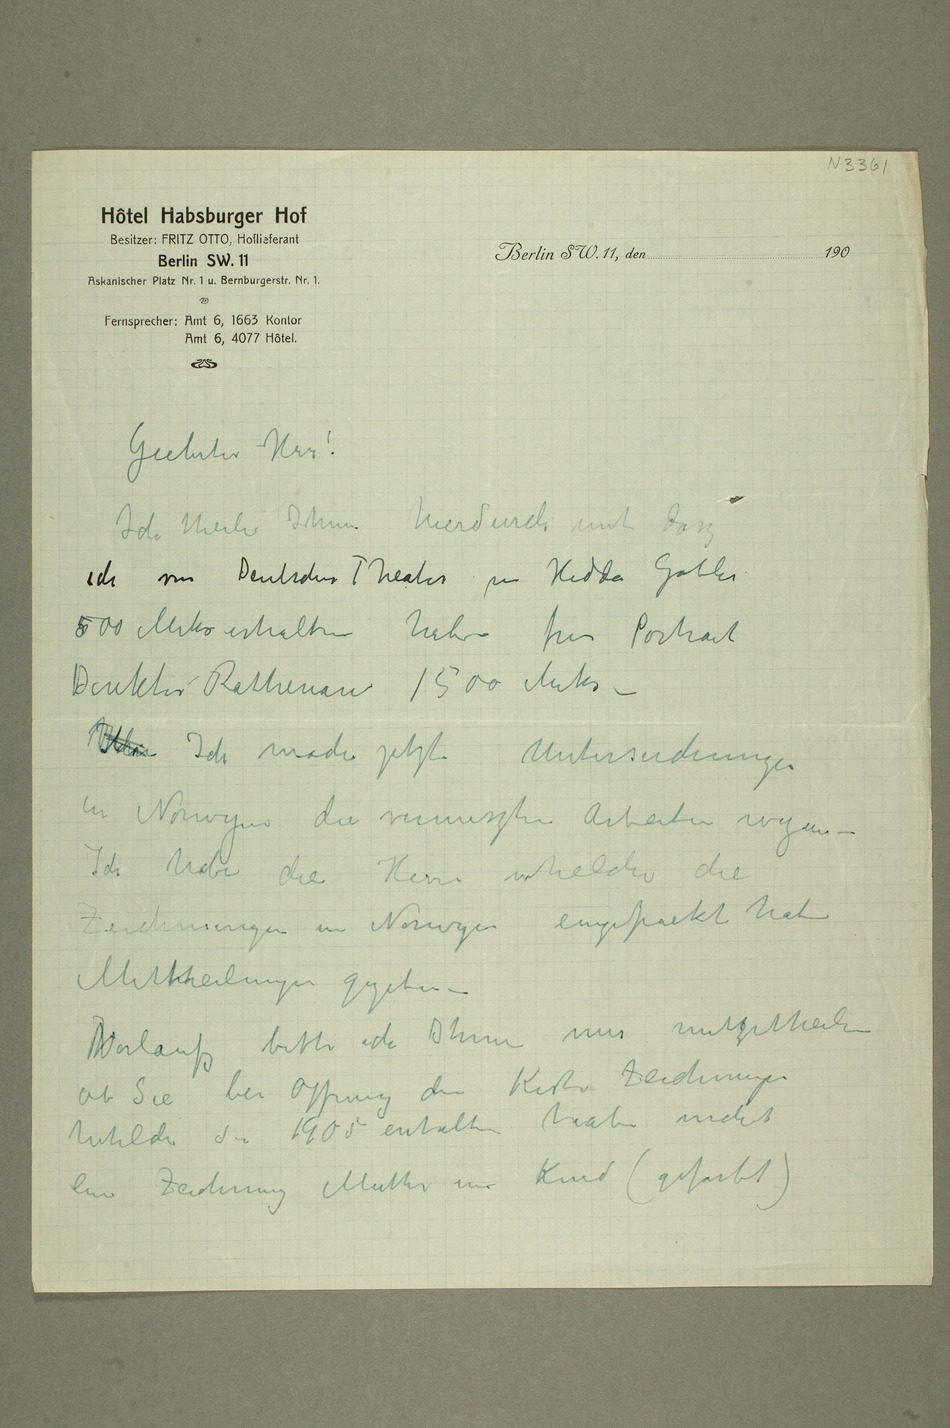 N3361
Hôtel Habsburger Hof
Besitzer: FRITZ OTTO, Hoflieferant
Berlin SW. 11
Askanischer Platz Nr. 1 u. Bernburgerstr. Nr. 1.
Fernsprecher: Amt 6, 1663 Kontor
Amt 6, 4077 Hôtel.
Berlin SW. 11, den 190
Geehrter Herr!
Ich theile Ihnen hierdurch mit dasz
ich von Deutsches Theater zu Hedda Gabler
500 Mks erhalten habe für Portrait
Direktor Rathenau 1500 Mks –
Ich mache jetzt Untersuchungen
in Norwegen die vermiszten Arbeiten wegen –
Ich habe die Herrn whelche die
Zeichnungen in Norwegen eingepackt hat
Mittheilungen gegeben –
Vorlaufg bitte ich Ihnen mir mitzutheilen
ob Sie bei Öffnung der Kiste Zeichnungen
whelche Sie 1905 erhalten haben nicht
eine Zeichnung Mutter und Kind (gefarbt)